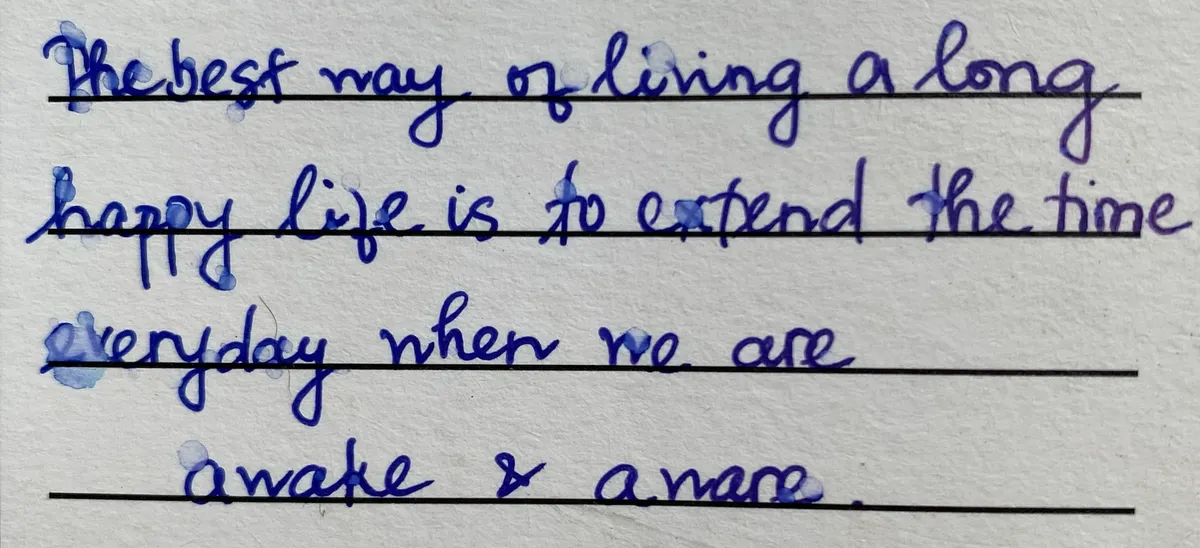 The best way of living a long
happy life is to extend the time
everyday when we are
awake & aware.